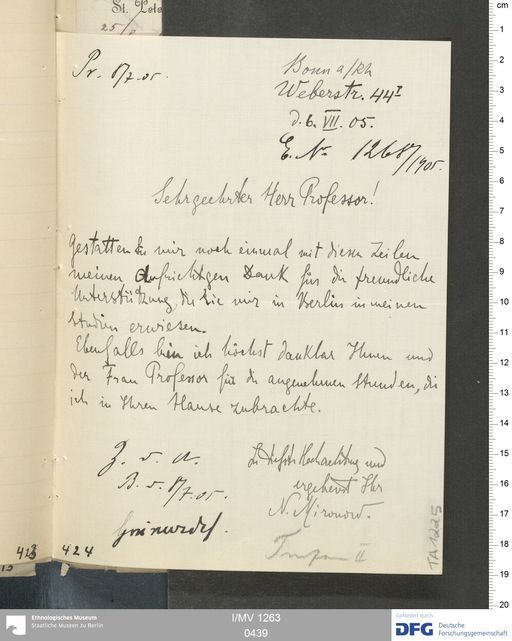 St. Pete
25/
cm
Pr. 8/7.05.
Bonn a/Rh
Weberstr. 44 I
d. 6. VII. 05.
E. No 1268/1905.
Sehrgeehrter Herr Professor!
Gestatten Sie mir noch einmal mit diesen Zeilen
meinen Aufrichtigen Dank für die freundliche
Unterstützung, die Sie mir in Berlin in meinen
Studien erwiesen.
Ebenfalls bin ich höchst dankbar Ihnen und
der Frau Professor für die angenehmen Stunden, die
ich in Ihrem Hause zubrachte.
Z. d. A.
B. d. 8/7.05.
Grünwedel.
Hochachtung und
ergebenst Ihr
N. Mironow.
II
TA 1225
423
424
1
2
3
4
5
6
7
8
9
10
11
12
13
14
15
16
17
18
19
20
Ethnologisches Museum
Staatliche Museen zu Berlin
I/MV 1263
0439
Gefördert durch
DFG Deutsche
Forschungsgemeinschaft